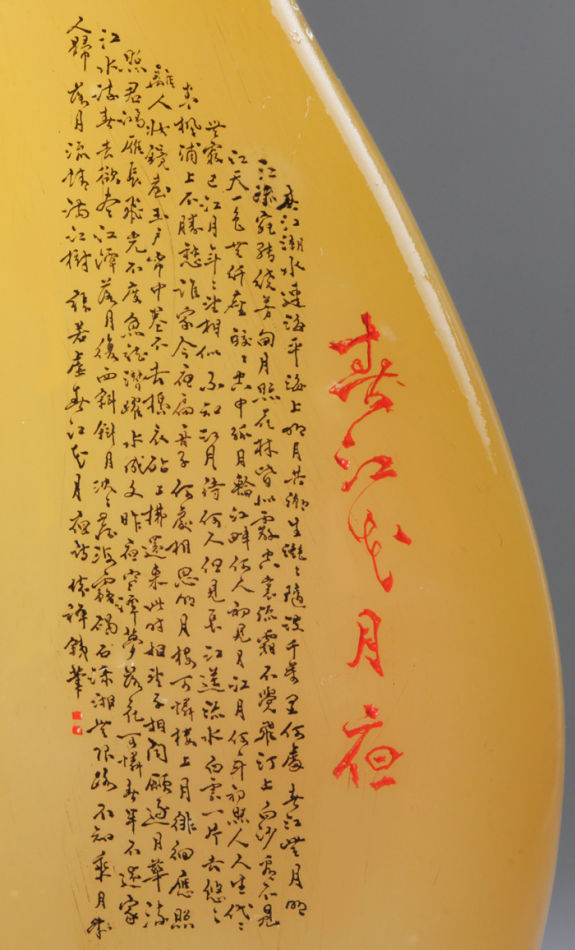 春江花月夜
春江潮水連海平海上明月共潮生灩〻隨波千萬里何處春江無月明
江流宛轉繞芳甸月照花林皆似霰空裏流霜不覺飛汀上白沙看不見
江天一色無纖塵皎〻空中孤月輪江畔何人初見月江月何年初照人人生代〻
無窮已江月年〻望相似不知江月待何人但見長江送流水白雲一片去悠〻
青楓浦上不勝愁誰家今夜扁舟子何處相思明月樓可憐樓上月徘徊應照
離人妝鏡臺玉户帘中卷不去擣衣砧上拂還來此時相望不相聞願逐月華流
照君鴻雁長飛光不度魚龍潛躍水成文昨夜閒潭夢落花可憐春半不還家
江水流春去欲盡江潭落月復西斜斜月沉〻藏海霧碣石瀟湘無限路不知乘月幾
人歸落月搖情滿江樹 張若虛春江花月夜詩 鐵筆